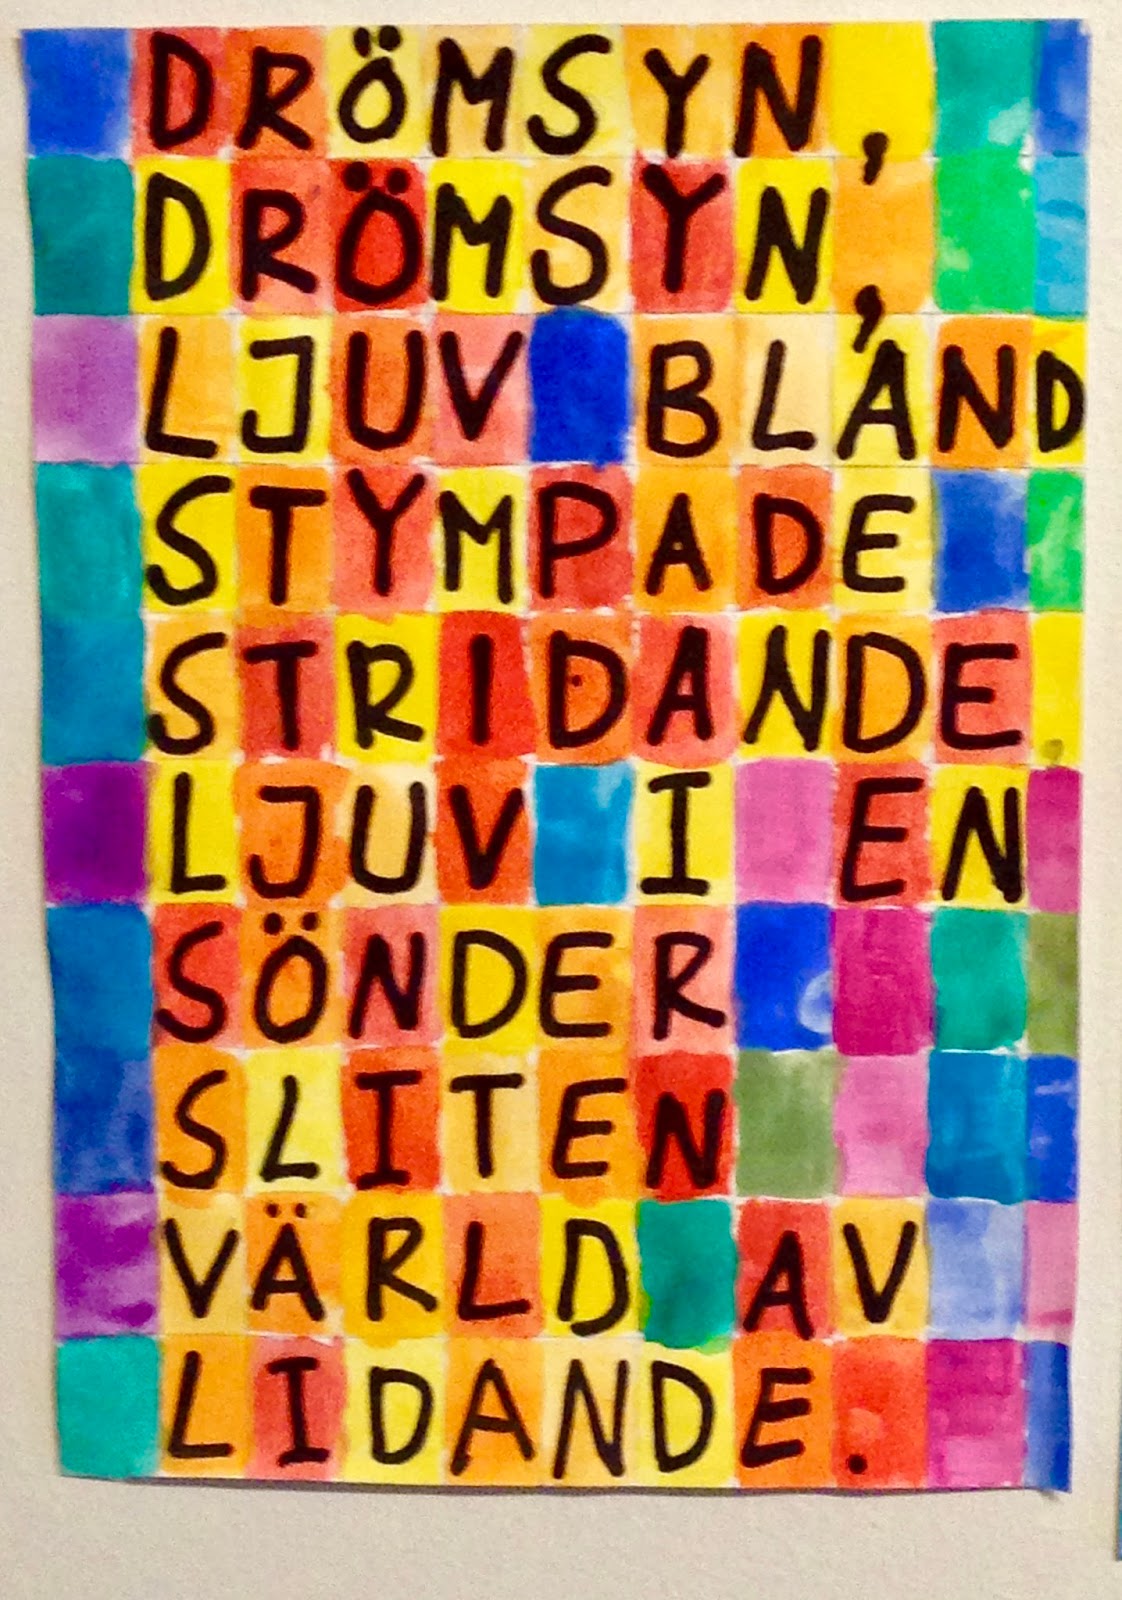 DRÖMSYN,
DRÖMSYN,
LJUV BLAND
STYMPADE
STRIDANDE,
LJUV I EN
SÖNDER
SLITEN
VÄRLD AV
LIDANDE.